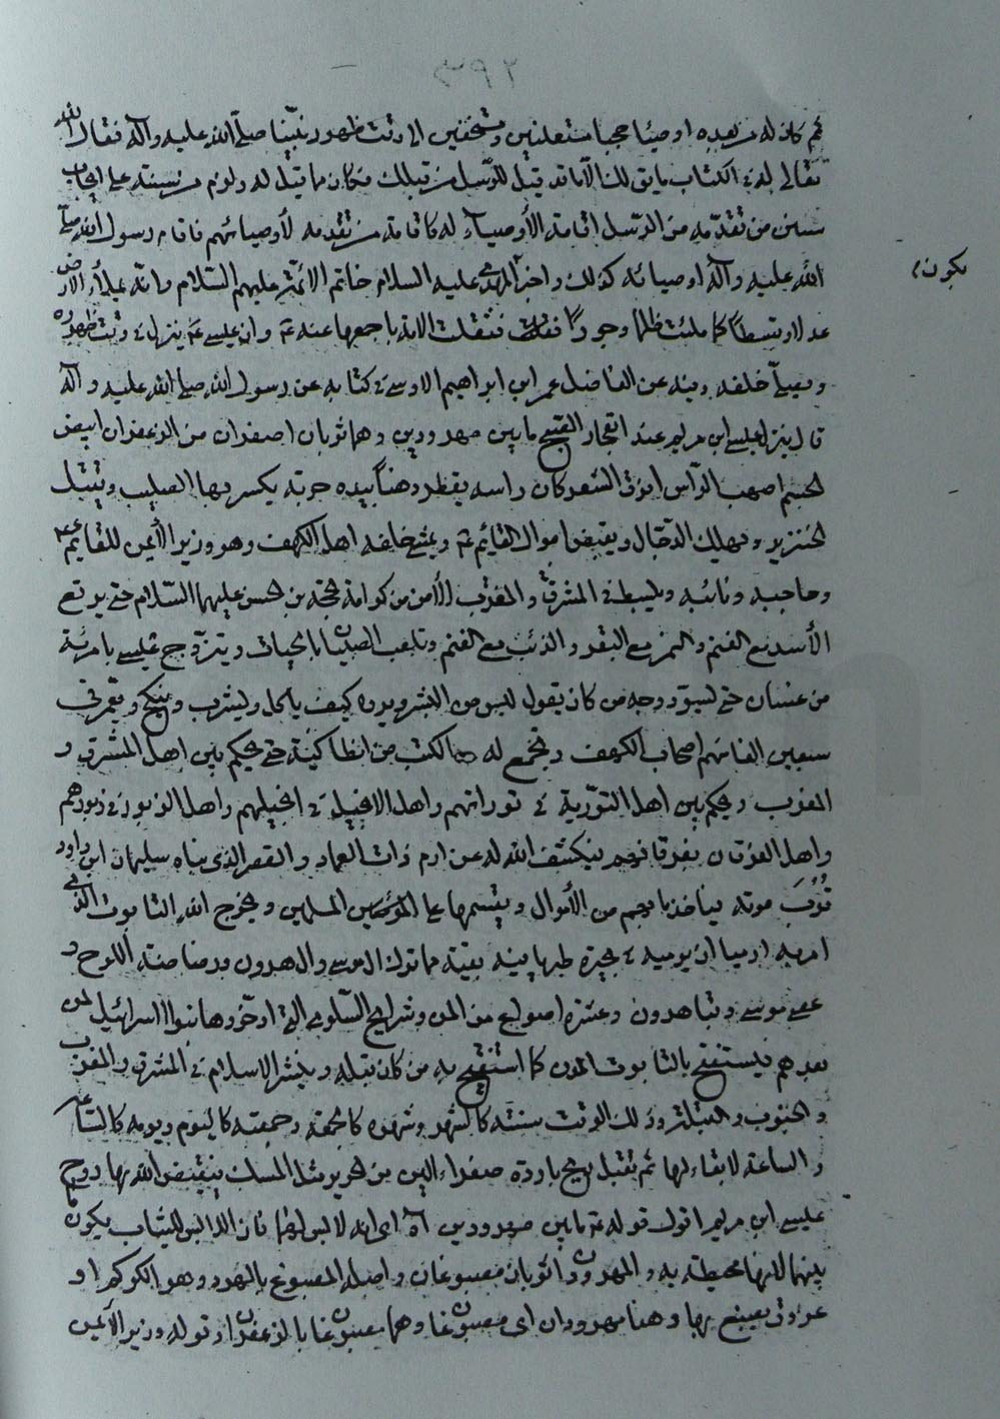 ٢٩٣
ثم كان له من بعده اوصياء حججا مستعلنين ومستخفين الى وقت ظهور نبينا صلى الله عليه وآله فقال الله
تعالى له في الكتاب ما يقال لك الا ما قد قيل للرسل من قبلك فكان مما قيل له ولزم من سنته على ايجاب
سنن من تقدمه من الرسل اقامة الأوصياء له كاقامة من تقدمه لأوصيائهم فاقام رسول الله صلى
الله عليه وآله اوصيائه كذلك واخبر المهدي عليه السلام خاتم الائمة عليهم السلام وانه يملأ الارض
يكون
عدلا وقسطا كما ملئت ظلما وجورا فنقلت الامة باجمعها عنه ع وان عيسى ع ينزل في وقت ظهوره
ويصلي خلفه وفيه عن الفاضل عمر ابن ابراهيم الاوسي في كتابه عن رسول الله صلى الله عليه وآله
قال ينزل عيسى ابن مريم عند انفجار الصبح ما بين مهرودين وهما ثوبان اصفران من الزعفران ابيض
الجسم اصهب الرأس افرق الشعر كان راسه يقطر دهنا بيده حربة يكسر بها الصليب ويقتل
الخنزير ويهلك الدجال ويقبض اموال القائم ع ويمشي خلفه اهل الكهف وهو وزير الأيمن للقائم ع
وحاجبه ونائبه ويبسط في المشرق والمغرب الأمن من كرامة الحجة بن الحسن عليهما السلام حتى يرتع
الأسد مع الغنم والنمر مع البقر والذئب مع الغنم وتلعب الصبيان بالحيات ويتزوج عيسى بامرئة
من غسان حتى يسود وجه من كان يقول ليس من البشر ويروه كيف ياكل ويشرب وينكح ويعمر في
سبعين الفا منهم اصحاب الكهف ويجمع له الكتب من انطاكية حتى يحكم بين اهل المشرق و
المغرب ويحكم بين اهل التورية في توراتهم واهل الانجيل في انجيلهم واهل الزبور في زبورهم
واهل الفرقان بفرقانهم فيكشف الله له عن ارم ذات العماد والقصر الذي بناه سليمان ابن داود
قرب موته فياخذ ما فيهم من الأموال ويقسمها على المسلمين ويخرج الله التابوت الذي
امر به ارميا ان يرميه في بحيرة طبريا فيه بقية مما ترك ال موسى وال هرون ورضاضة اللوح و
عصى موسى وقبا هرون وعشرة اصوع من المن وشرايح السلوى التي ادخروها بنوا اسرائيل لمن
بعدهم فيستفتح بالتابوت المدن كما استفتح به من كان قبله وينشر الاسلام في المشرق والمغرب
والجنوب والقبلة وذلك الوقت سنته كالشهر وشهره كالجمعة وجمعته كاليوم ويومه كالساعة
والساعة لا بقاء لها ثم تقبل ريح باردة صفراء الين من الحرير مثل المسك فيقبض الله بها روح
عيسى ابن مريم اقول قوله ع ما بين مهرودين اه اى انه لابس لهما فان اللابس للثياب يكون
بينهما لانها محيطة به والمهرودان ثوبان مصبوغان واصله المصبوغ بالهرد وهو الكركم او
عروق يصبغ بها وهنا مهرودان اى مصبوغان وهما مصبوغان بالزعفران وقوله وزير الأيمن